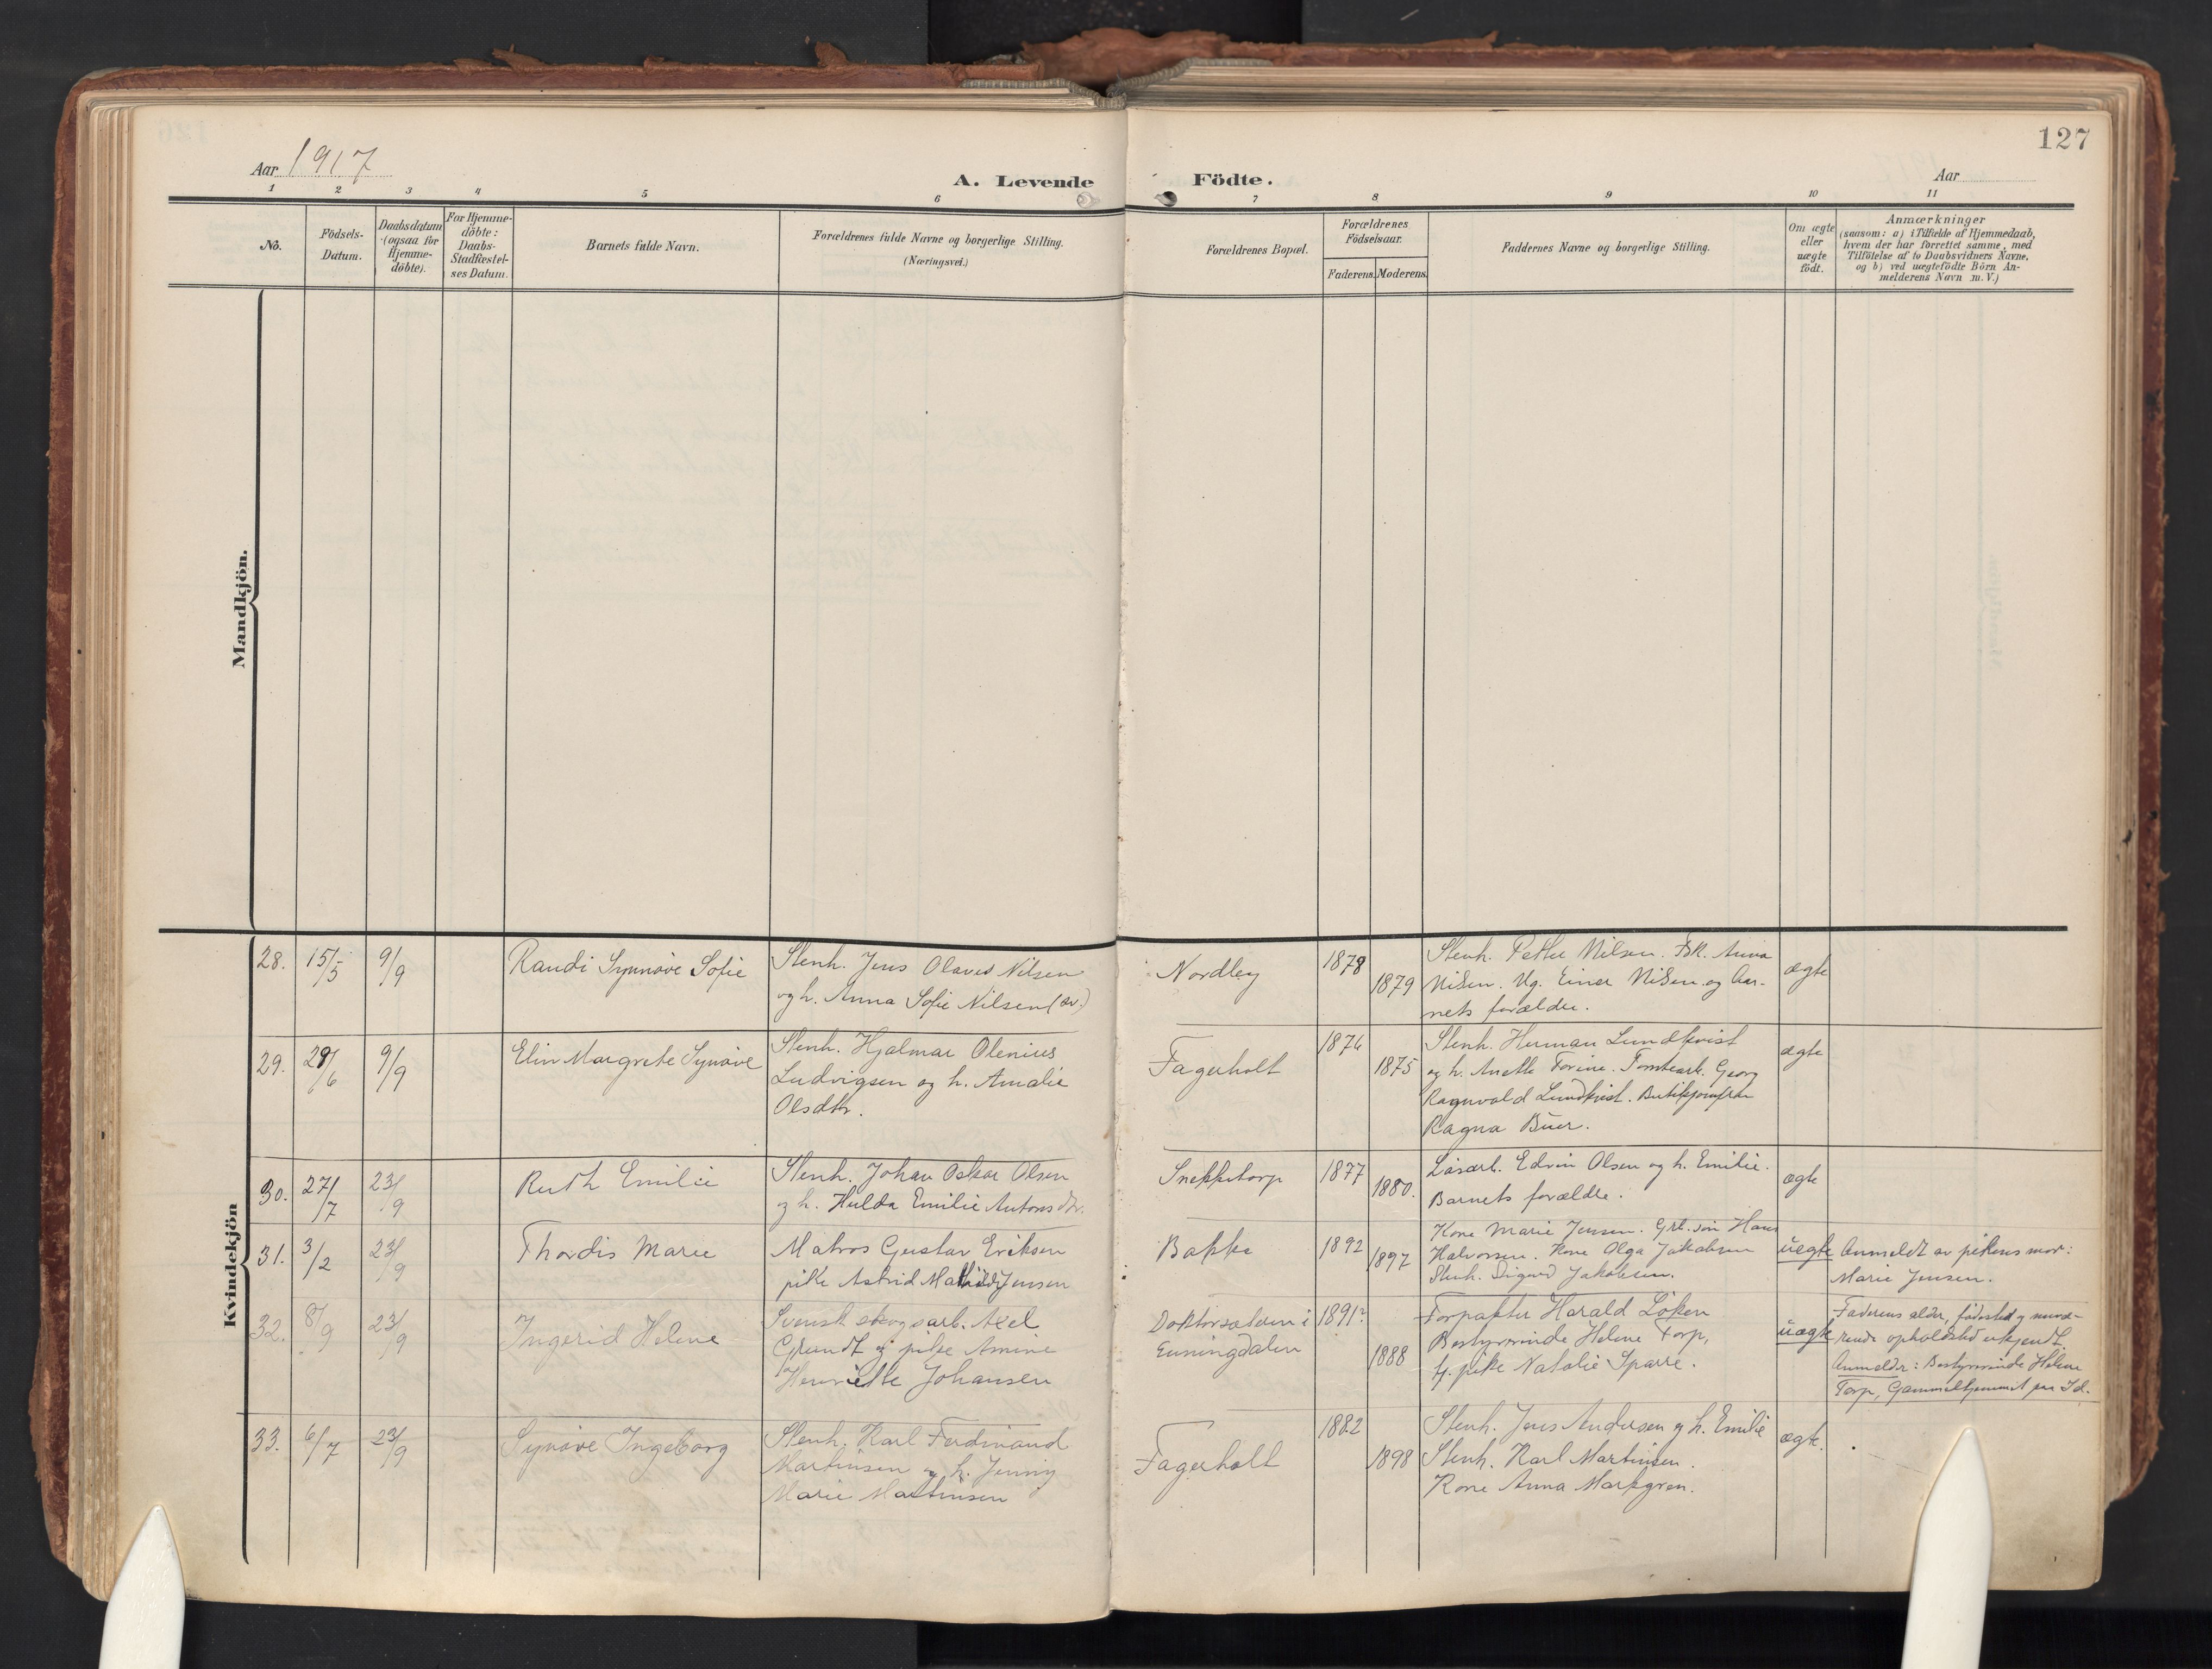 127
Aar 1917
A. Levende Födte.
Aar
1 2 3 4 5 6 7 8 9 10 11
No.
Födsels-
Datum.
Daabsdatum
(ogsaa for
Hjemme-
döbte).
For Hjemme-
döbte:
Daabs-
Stadfæstel-
ses Datum.
Barnets fulde Navn.
Forældrenes fulde Navne og borgerlige Stilling.
(Næringsvei.)
Forældrenes Bopæl.
Forældrenes
Födselsaar.
Faderens. Moderens.
Faddernes Navne og borgerlige Stilling.
Om ægte
eller
uægte
födt.
Anmærkninger
(saasom: a) i Tilfælde af Hjemmedaab,
hvem der har forrettet samme, med
Tilföielse af to Daabsvidners Navne,
og b) ved uægtefödte Börn An-
melderens Navn m. V.)
Mandkjön.
Kvindekjön
28. 15/5 9/9
Randi Synnøve Sofie
Stenh. Jens Olaves Nilsen
og h. Anna Sofie Nilsen (sv.)
Nordley
1878
1879
Stenh. Petter Nilsen. Fbk. Anna
Nilsen. Ug. Einer Nilsen og bar-
nets forældre.
ægte
29. 29/6 9/9
Elin Margrete Synøve
Stenh. Hjalmar Olenius
Ludvigsen og h. Amalie
Olsdtr.
Fagerholt
1876
1875
Stenh. Herman Lundkvist
og h. Anette Torine. Tomtearb. Georg
Ragnvald Lundkvist. Butikjomfru
Ragna Buer.
ægte
30. 27/7 23/9
Ruth Emilie
Stenh. Johan Oskar Olsen
og h. Hulda Emilie Antonsdtr.
Snekketorp
1877
1880.
Løsarb. Edvin Olsen og h. Emilie.
Barnets forældre.
ægte
31. 3/2 23/9
Thordis Marie
Matros Gustav Eriksen
pike Astrid Mathilde Jensen
Bakke
1892
1897
Kone Marie Jensen. Grb.søn Hans
Halvorsen. Kone Olga Jakobsen
Stenh. Sigurd Jakobsen.
uegte
Anmeldt av pikens mor:
Marie Jensen.
32. 8/9 23/9
Ingerid Helene
Svensk skogsarb. Axel
Grundt og pike Amine
Henriette Johansen
Doktorsætern i
Enningdalen
1891?
1888
Forpakter Harald Løken
Bestyrerinde Helene Torp,
tj. pike Natalie Sparre.
uægte
Faderens alder, fødested og nuvæ-
rende opholdsted ukjendt.
Anmelder: Bestyrerinde Helene
Torp, Gammelhjemmet pr Id.
33. 6/7 23/9
Synøve Ingeborg
Stenh. Karl Ferdinand
Martinsen og h. Jenny
Marie Martinsen
Fagerholt
1882
1898
Stenh. Jens Andersen og h. Emilie
Stenh. Karl Martinsen.
Kone Anna Markgren.
ægte.